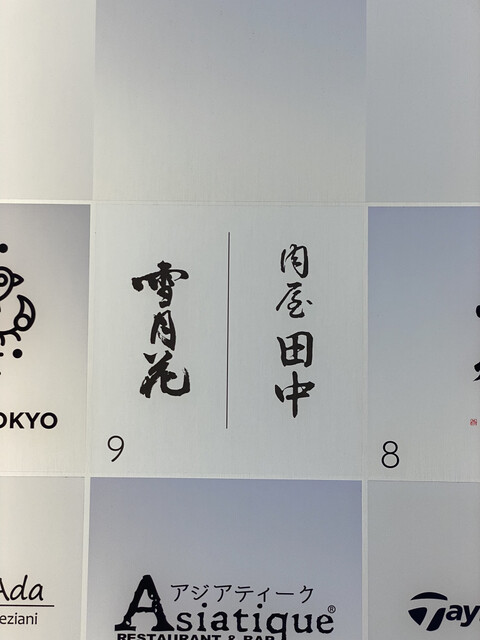 肉屋田中
雪月花
9
8
OKYO
Ada
eziani
アジアティーク
Asiatique®
RESTAURANT & BAR
Tay